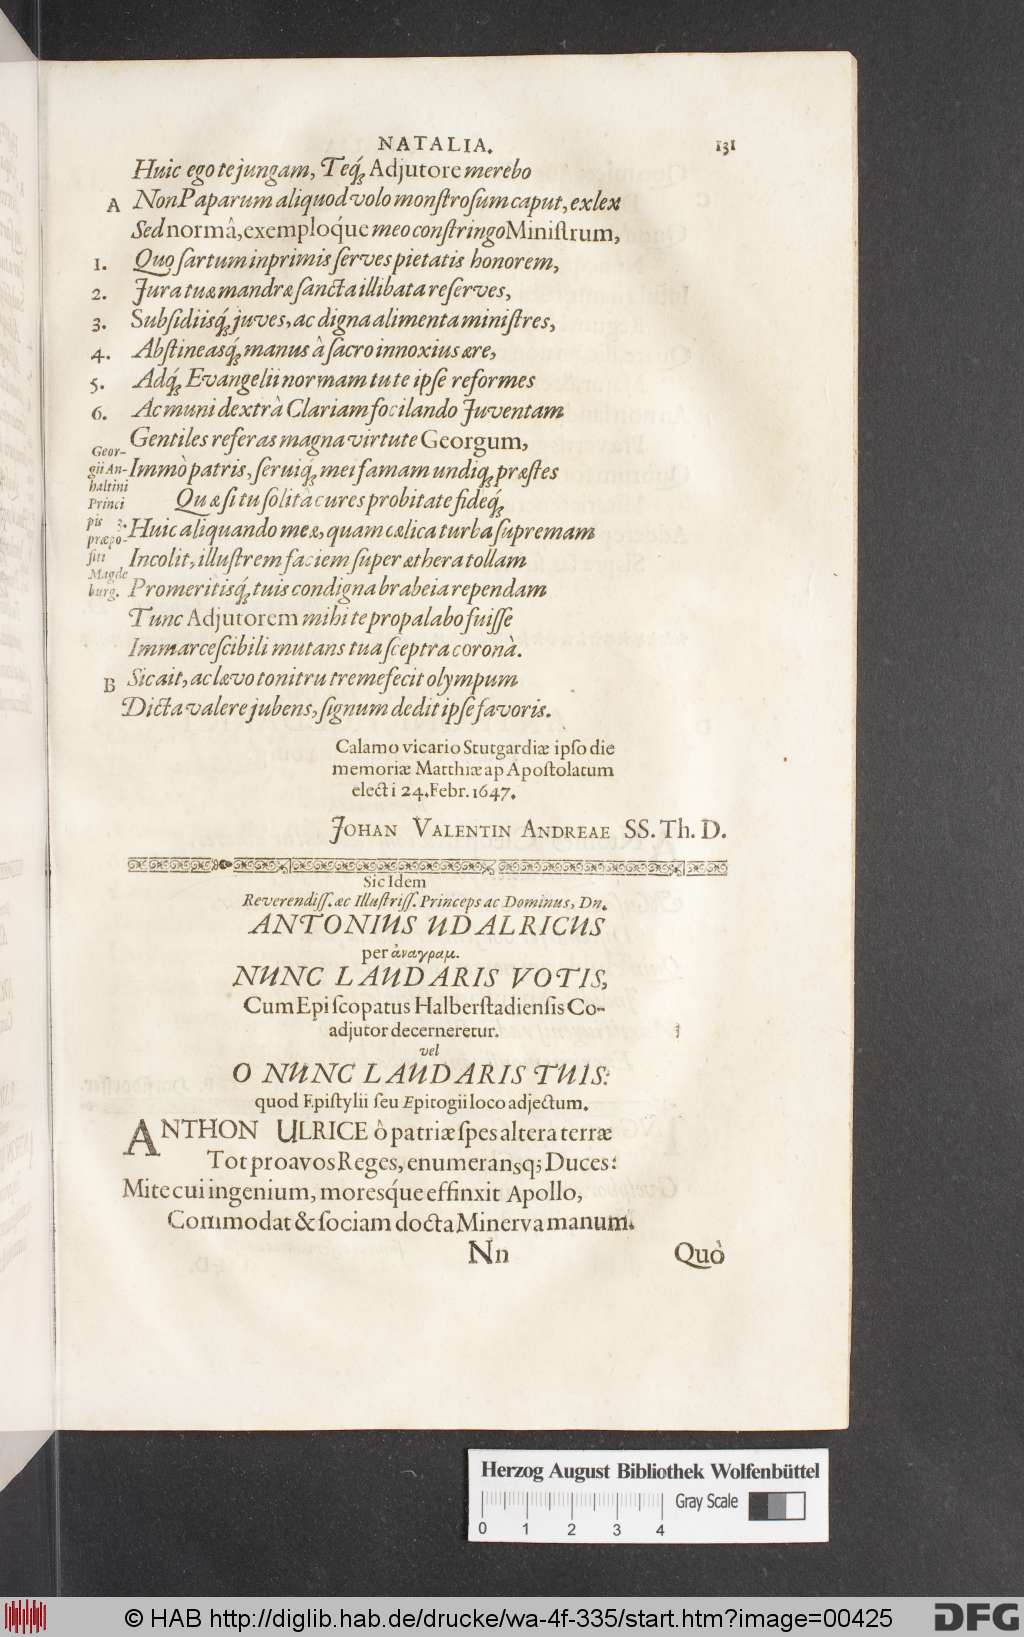 NATALIA. 131
Huic ego te jungam, Teq́; Adjutore merebo
A Non Paparum aliquod volo monſtroſum caput, exlex
Sed normâ, exemploq́ue meo conſtringo Miniſtrum,
1. Quo ſartum inprimis ſerves pietatis honorem,
2. Jura tuæ mandræ ſancta illibata reſerves,
3. Subſidiisq́; juves, ac digna alimenta miniſtres,
4. Abſtineasq́; manus à ſacro innoxius ære,
5. Adq́; Evangelii normam tu te ipſe reformes
6. Ac muni dextrà Clariam focilando Juventam
Gentiles referas magna virtute Georgum,
Geor-
gii An-
haltini
Princi
pis 3.
præpo-
ſiti
Magde
burg.
Immò patris, ſeruiq́; mei famam undiq; præſtes
Quæ ſi tu ſolità cures probitate fideq́;
Huic aliquando meæ, quam cælica turba ſupremam
Incolit, illuſtrem faciem ſuper æthera tollam
Promeritisq́; tuis condigna brabeia rependam
Tunc Adjutorem mihi te propalabo fuiſſe
Immarceſcibili mutans tua ſceptra coronà.
B Sic ait, ac lævo tonitru tremefecit olympum
Dicta valere jubens, ſignum dedit ipſe favoris.
Calamo vicario Stutgardiæ ipſo die
memoriæ Matthiæ ap Apoſtolatum
electi 24. Febr. 1647.
JOHAN VALENTIN ANDREAE SS. Th. D.
Sic Idem
Reverendiſſ. ac Illuſtriſſ. Princeps ac Dominus, Dn.
ANTONIUS UDALRICUS
per ἀναγραμ.
NUNC LAUDARIS VOTIS,
Cum Epiſcopatus Halberſtadienſis Co-
adjutor decerneretur.
vel
O NUNC LAUDARIS TUIS:
quod Epiſtylii ſeu Epitogii loco adjectum.
ANTHON ULRICE ô patriæ ſpes altera terræ
Tot proavos Reges, enumeransq; Duces:
Mite cui ingenium, moresq́ue effinxit Apollo,
Commodat & ſociam docta Minerva manum.
Nn Quò
Herzog August Bibliothek Wolfenbüttel
Gray Scale
0 1 2 3 4
© HAB http://diglib.hab.de/drucke/wa-4f-335/start.htm?image=00425
DFG